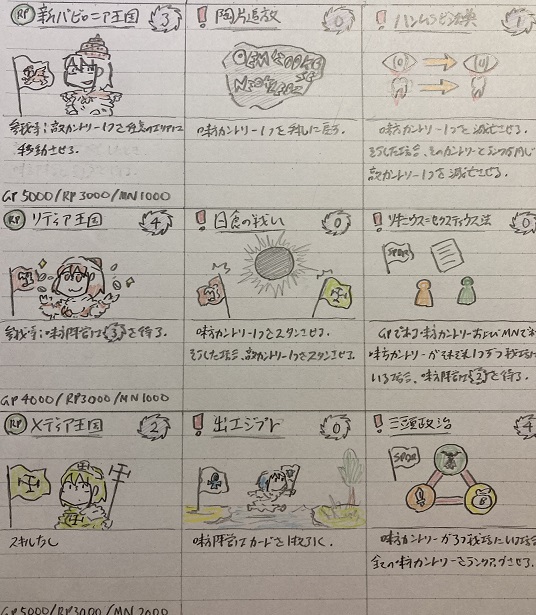 RP 新バビロニア王国 3
参戦時:敵カントリー1つを任意のエリアに
移動させる.
GP5000/RP3000/MN1000
! 陶片追放 0
味方カントリー1つを手札に戻す.
! ハンムラビ法典 1
味方カントリー1つを滅亡させる.
そうした場合、そのカントリーとランクが同じ
敵カントリー1つを滅亡させる.
RP リディア王国 4
参戦時:味方陣営は③を得る.
GP4000/RP3000/MN1000
! 日食の戦い 0
味方カントリー1つをスタンさせる.
そうした場合、敵カントリー1つをスタンさせる.
! リキニウス=セクスティウス法 0
SPQR
GPである味方カントリーおよびMNで
味方カントリーがそれぞれ1つずつ戦場に
いる場合、味方陣営は②を得る.
RP メディア王国 2
スキルなし
GP5000/RP3000/MN2000
! 出エジプト 0
味方陣営はカードを1枚引く.
! 三頭政治 4
SPQR
味方カントリーが3つ戦場にいる場合
全ての味方カントリーをランクアップさせる.